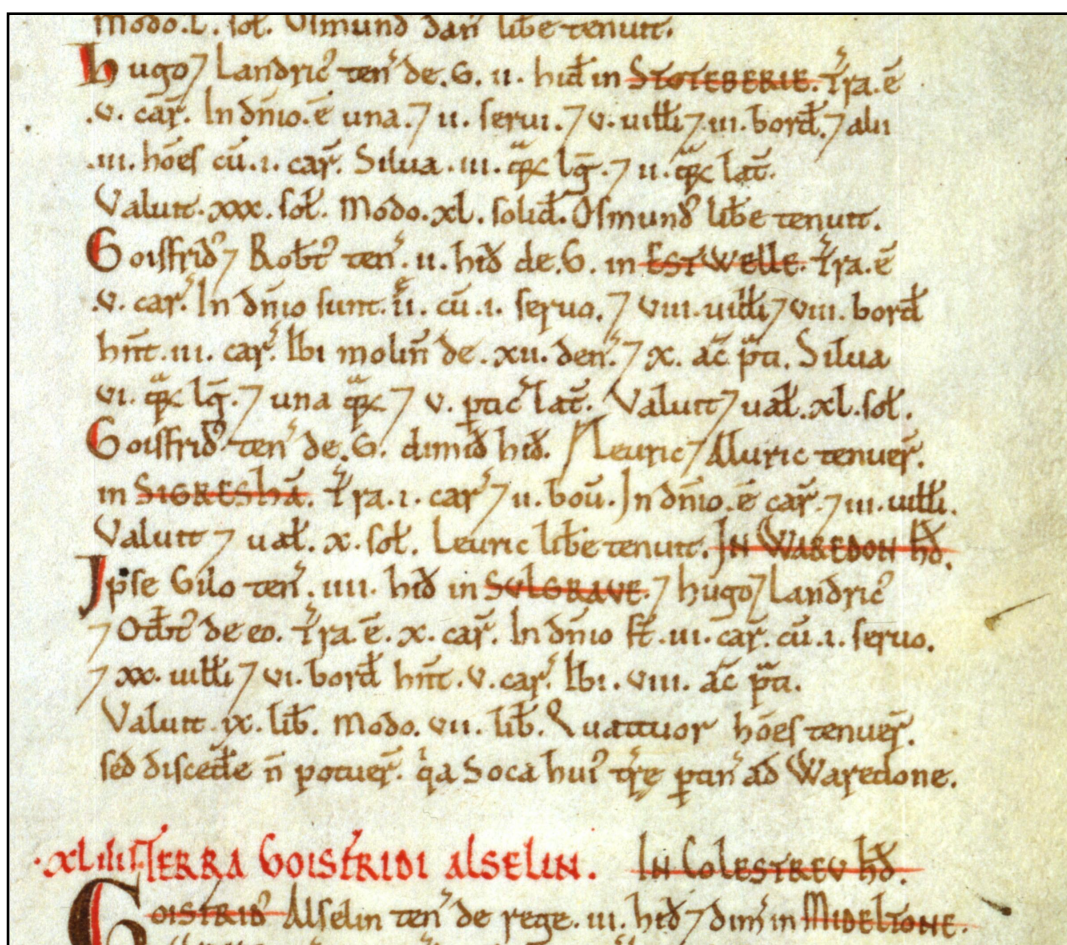 modo.L. sol̃. Osmund dan̄ lib̃e tenuit.
Hugo ⁊ Landric̓ ten̄ de.G. ii. hid̃ in STOTEBERIE. T̃ra.ē
.v. car̃. In dn̄io.ē una.⁊ ii. serui.⁊ v. uill̃i ⁊ iii. bord̃.⁊ alii
.iii. hōes cū.i. car̃. Silua .iii. q̃ꝝ lḡ.⁊ ii. q̃ꝝ lat̃.
Valuit.xxx. sol̃. modo.xl. solid̃. Osmund̃ lib̃e tenuit.
Goisfrid̓ ⁊ Rotb̃t̓ ten̄. ii. hid̃ de.G. in ESTWELLE. T̃ra.ē
.v. car̃. In dn̄io sunt.ii. cū.i. seruo.⁊ viii. uill̃i ⁊ viii. bord̃
hn̄t.iii. car̃. Ibi molin̄ de .xii. den̄.⁊ x. ac̃ p̃ti. Silua
vi. q̃ꝝ lḡ.⁊ una q̃ꝝ ⁊ v. ptic̃ lat̃. Valuit ⁊ ual̃.xl.sol̃.
Goisfrid̓ ten̄ de.G. dimid̃ hid̃. Leuric ⁊ Aluric tenuer̃.
in SIGRESHĀ. T̃ra.i. car̃ ⁊ ii. bou̅. In dn̄io.ē car̃.⁊ iii. uill̃i.
Valuit ⁊ ual̃. x. sol̃. Leuric lib̃e tenuit. IN WAREDON HD̃.
Ipse Gilo ten̄. iiii. hid̃ in SULGRAVE.⁊ hugo ⁊ Landric̓
⁊ Otb̃t̓ de eo. T̃ra ē. x. car̃. In dn̄io st̃.iii. car̃. cū.i. seruo.
⁊ xx. uill̃i ⁊ vi. bord̃ hn̄t.v. car̃. Ibi .viii. ac̃ p̃ti.
Valuit.ix. lib̃. modo. vii. lib̃. Quattuor hōes tenuer̃.
sed disced̃e n̄ potuer̃. q̓a Soca hui̓ tr̃e ptin̄ ad Waredone.
.XLIIII. TERRA GOISFRIDI ALSELIN. IN COLESTREU HD̃.
GOISFRID̓ Alselin ten̄ de rege. iii. hid̃ ⁊ dim̄ in MIDELTONE.